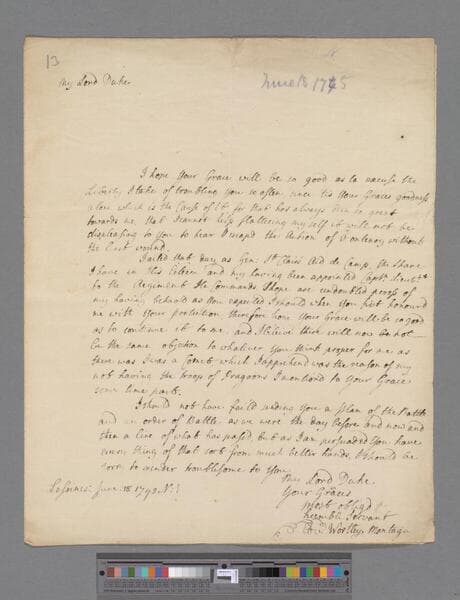 13
June 18 1745
My Lord Duke
I hope Your Grace will be so good as to excuse the
Liberty I take of troubling you so often, since tis Your Graces goodness
alone which is the Cause of it for that has always been so great
towards me, that I cannot help flattering my self it will not be
displeasing to you to hear I escap'd the Action of Fontenoy without
the least wound.
I acted that day as Gen: St Clair's Aid de Camp. the share
I have in his Esteem and my having been appointed Capt: Lieut:
to the Regiment He Commands I hope are undoubted proofs of
my having behav'd as You expected I should when you first honour'd
me with Your protection therefore hope Your Grace will be so good
as to continue it to me. and I believe there will now be not
the same objection to whatever you think proper for me as
there was I was a Cornet which I apprehend was the reason of my
not having the troop of Dragoons I mention'd to Your Grace
some time past.
I should not have fail'd sending you a plan of the Battle
and an order of Battle. as we were the day before and now and
then a line of what has pass'd but as I am persuaded You have
every thing of that sort from much better hands, I should be
sorry to render troublesome to you
My Lord Duke
Your Graces
most oblig'd
humble Servant
Wortley Montagu
June 18 174